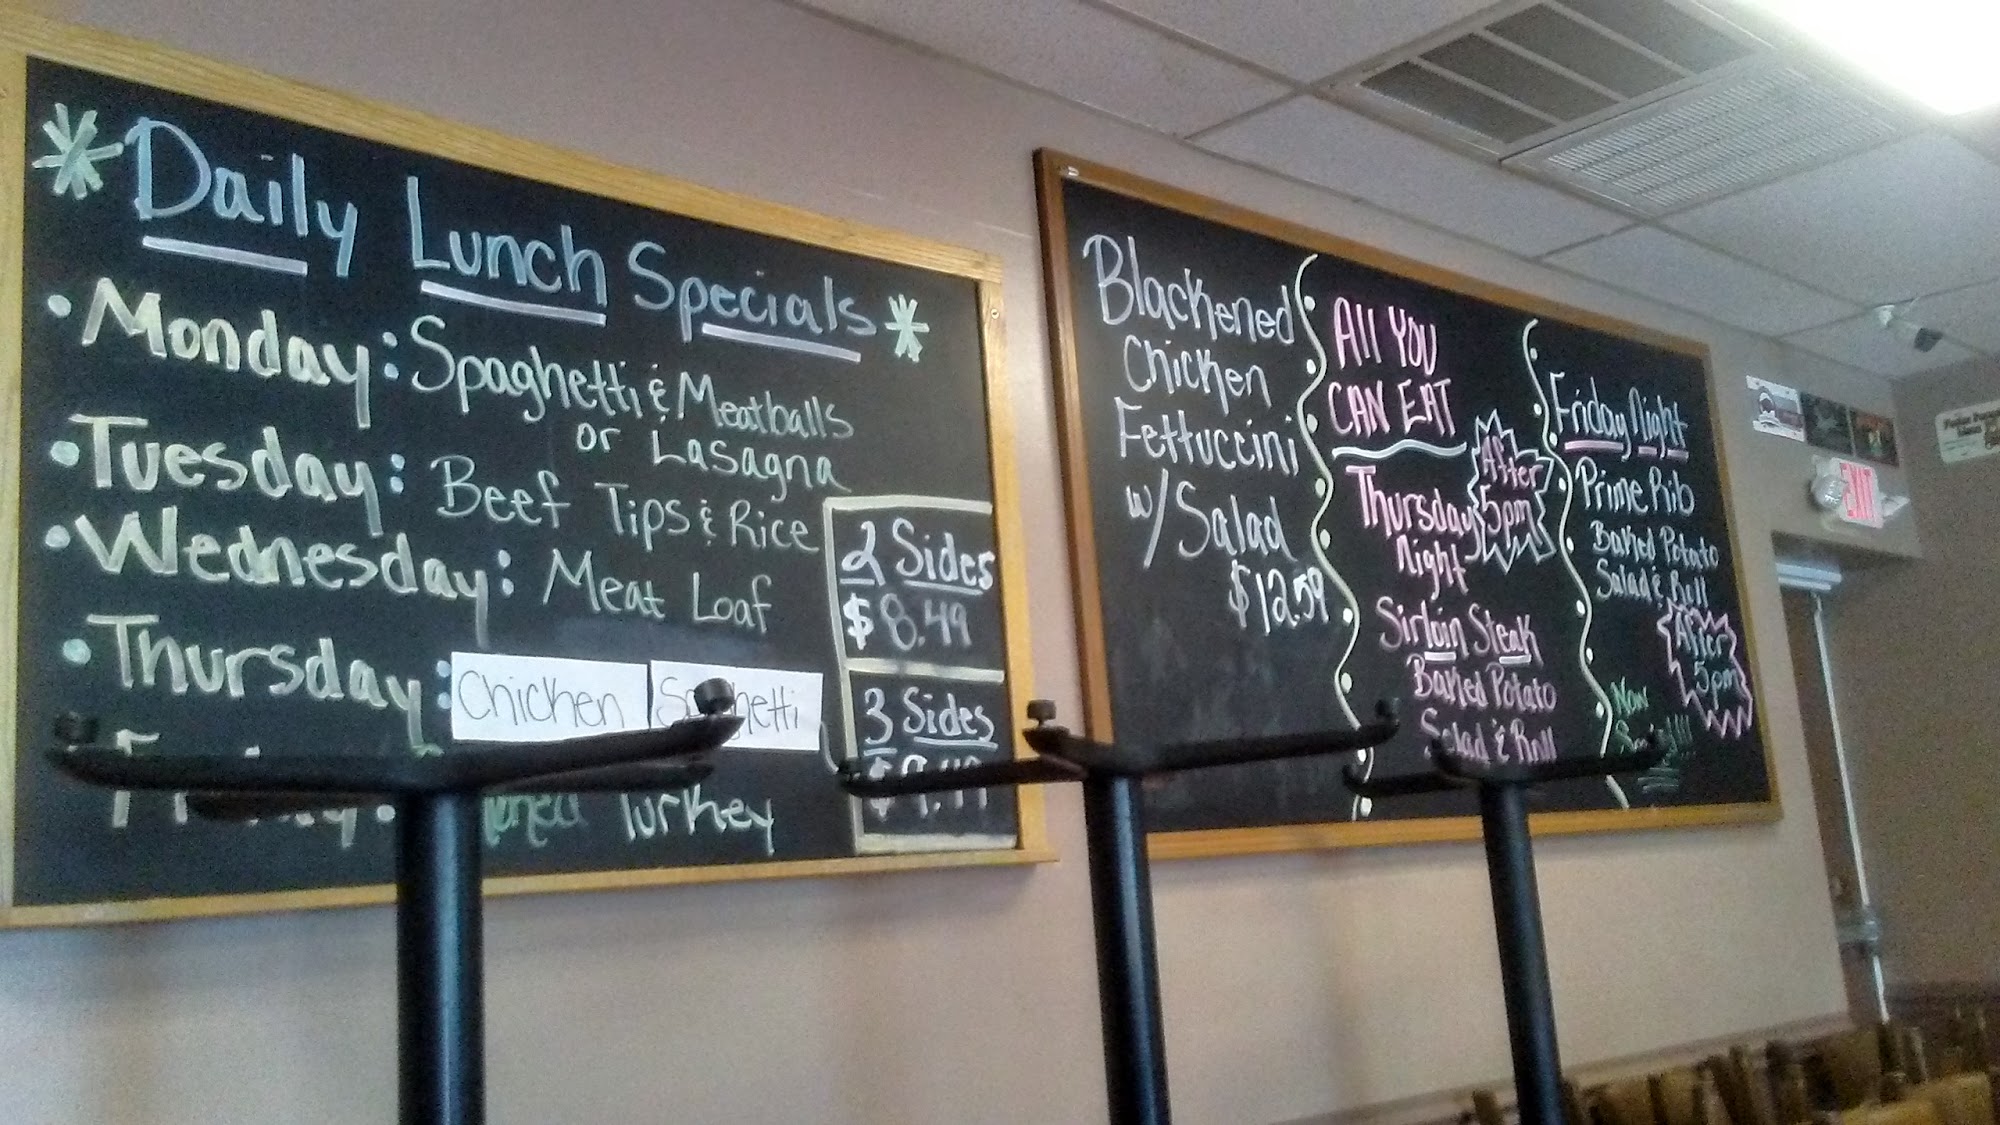 Daily Lunch Specials
• Monday: Spaghetti & Meatballs
or Lasagna
• Tuesday: Beef Tips & Rice
• Wednesday: Meat Loaf
• Thursday: Chicken Spaghetti
Turkey
2 Sides
$8.49
3 Sides
$9.49
Blackened
Chicken
Fettuccini
w/ Salad
$12.59
All YOU
CAN EAT
Thursday
Night
After
5pm
Sirloin Steak
Baked Potato
Salad & Roll
Friday Night
Prime Rib
Baked Potato
Salad & Roll
After
5pm
Now
EXIT